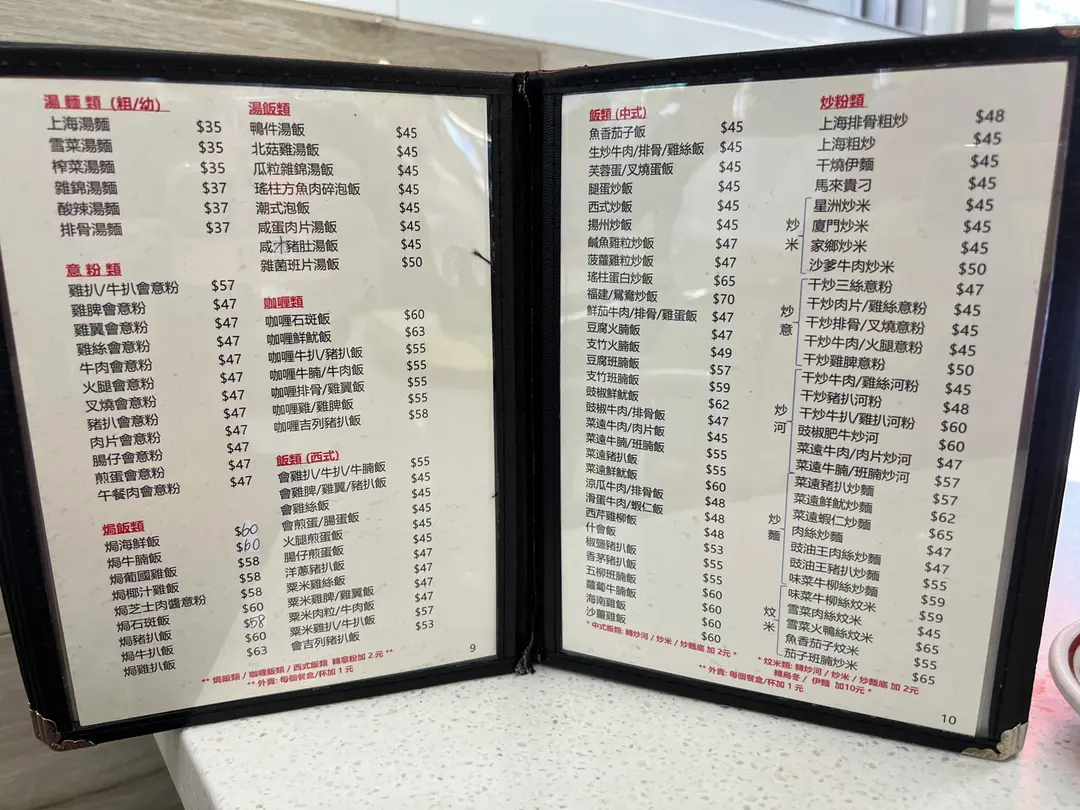 湯麵類 (粗/幼)
上海湯麵 $35
雪菜湯麵 $35
榨菜湯麵 $35
雜錦湯麵 $37
酸辣湯麵 $37
排骨湯麵 $37
意粉類
雞扒/牛扒會意粉 $57
雞脾會意粉 $47
雞翼會意粉 $47
雞絲會意粉 $47
牛肉會意粉 $47
火腿會意粉 $47
叉燒會意粉 $47
豬扒會意粉 $47
肉片會意粉 $47
腸仔會意粉 $47
煎蛋會意粉 $47
午餐肉會意粉 $47
焗飯類
焗海鮮飯 $60
焗牛腩飯 $60
焗葡國雞飯 $58
焗椰汁雞飯 $58
焗芝士肉醬意粉 $58
焗石斑飯 $60
焗豬扒飯 $58
焗牛扒飯 $60
焗雞扒飯 $63
湯飯類
鴨件湯飯 $45
北菇雞湯飯 $45
瓜粒雜錦湯飯 $45
瑤柱方魚肉碎泡飯 $45
潮式泡飯 $45
咸蛋肉片湯飯 $45
咸才豬肚湯飯 $45
雜菌班片湯飯 $50
咖喱類
咖喱石斑飯 $60
咖喱鮮魷飯 $63
咖喱牛扒/豬扒飯 $55
咖喱牛腩/牛肉飯 $55
咖喱排骨/雞翼飯 $55
咖喱雞/雞脾飯 $55
咖喱吉列豬扒飯 $58
飯類 (西式)
會雞扒/牛扒/牛腩飯 $55
會雞脾/雞翼/豬扒飯 $45
會雞絲飯 $45
會煎蛋/腸蛋飯 $45
火腿煎蛋飯 $45
腸仔煎蛋飯 $45
洋蔥豬扒飯 $47
粟米雞絲飯 $47
粟米雞脾/雞翼飯 $47
粟米肉粒/牛肉飯 $47
粟米雞扒/牛扒飯 $57
會吉列豬扒飯 $53
** 焗飯類 / 咖喱飯類 / 西式飯類 轉意粉加 2 元 **
** 外賣: 每個餐盒/杯加 1 元
9
飯類 (中式)
魚香茄子飯 $45
生炒牛肉/排骨/雞絲飯 $45
芙蓉蛋/叉燒蛋飯 $45
腿蛋炒飯 $45
西式炒飯 $45
揚州炒飯 $45
鹹魚雞粒炒飯 $47
菠蘿雞粒炒飯 $47
瑤柱蛋白炒飯 $65
福建/鴛鴦炒飯 $70
鮮茄牛肉/排骨/雞蛋飯 $47
豆腐火腩飯 $47
支竹火腩飯 $49
豆腐班腩飯 $57
支竹班腩飯 $59
豉椒鮮魷飯 $62
豉椒牛肉/排骨飯 $47
菜遠牛肉/肉片飯 $45
菜遠牛腩/班腩飯 $55
菜遠豬扒飯 $55
菜遠鮮魷飯 $60
涼瓜牛肉/排骨飯 $48
滑蛋牛肉/蝦仁飯 $48
西芹雞柳飯 $48
什會飯 $53
椒鹽豬扒飯 $55
香茅豬扒飯 $55
五柳班腩飯 $60
蘿蔔牛腩飯 $60
海南雞飯 $60
沙薑雞飯 $60
* 中式飯類: 轉炒河 / 炒米 / 炒麵底 加 2元 *
炒粉類
上海排骨粗炒 $48
上海粗炒 $45
干燒伊麵 $45
馬來貴刁 $45
炒米
星洲炒米 $45
廈門炒米 $45
家鄉炒米 $45
沙爹牛肉炒米 $50
炒意
干炒三絲意粉 $47
干炒肉片/雞絲意粉 $45
干炒排骨/叉燒意粉 $45
干炒牛肉/火腿意粉 $45
干炒雞脾意粉 $50
炒河
干炒牛肉/雞絲河粉 $45
干炒豬扒河粉 $48
干炒牛扒/雞扒河粉 $60
豉椒肥牛炒河 $60
菜遠牛肉/肉片炒河 $47
菜遠牛腩/班腩炒河 $57
炒麵
菜遠豬扒炒麵 $57
菜遠鮮魷炒麵 $62
菜遠蝦仁炒麵 $65
肉絲炒麵 $47
豉油王肉絲炒麵 $47
豉油王豬扒炒麵 $55
味菜牛柳絲炒麵 $59
炆米
味菜牛柳絲炆米 $59
雪菜肉絲炆米 $45
雪菜火鴨絲炆米
魚香茄子炆米 $55
茄子班腩炆米 $65
* 炆米類: 轉炒河 / 炒米 / 炒麵底 加 2元
轉烏冬 / 伊麵 加10元 *
** 外賣: 每個餐盒/杯加 1 元
10